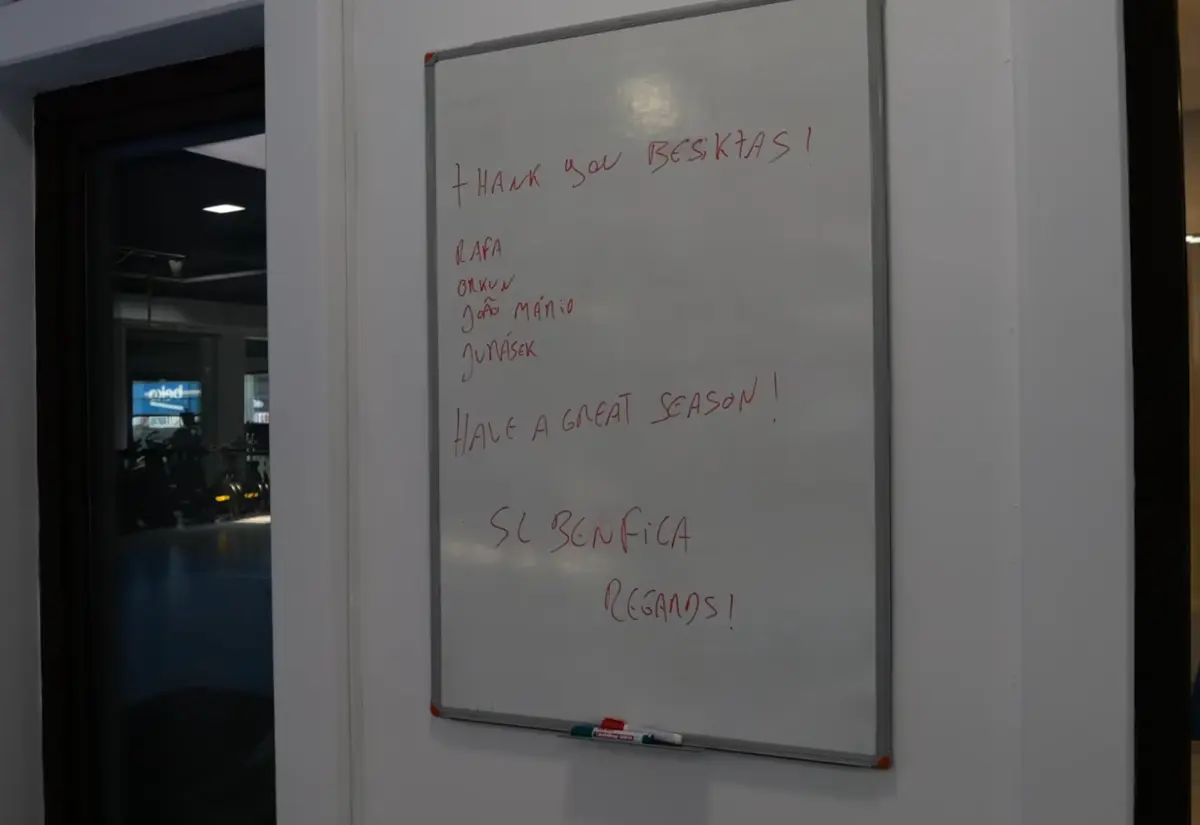 tHANK you BESiKtAS!
RAFA
ORKUN
JOÃO MÁRIO
JURÁSEK
HAVE A GREAT SEASON!
SL BENFiCA
REGARDS!
beko